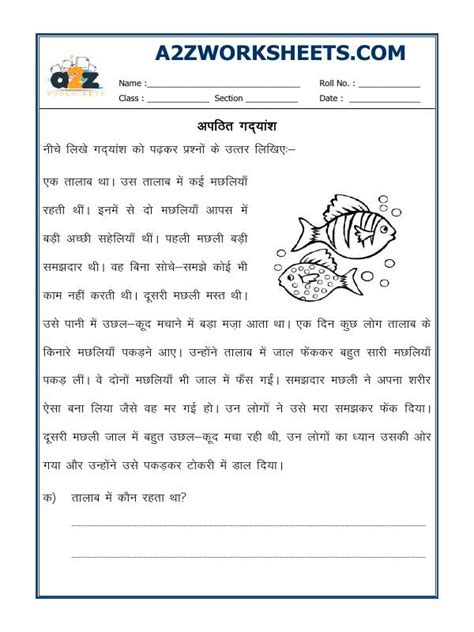 A2ZWORKSHEETS.COM
a2z
WORKSHEETS
Name :____________________ Roll No. : __________
Class : ____________ Section __________ Date : __________
अपठित गद्यांश
नीचे लिखे गद्यांश को पढ़कर प्रश्नों के उत्तर लिखिए:–
एक तालाब था। उस तालाब में कई मछलियाँ
रहती थीं। इनमें से दो मछलियाँ आपस में
बड़ी अच्छी सहेलियाँ थीं। पहली मछली बड़ी
समझदार थी। वह बिना सोचे–समझे कोई भी
काम नहीं करती थी। दूसरी मछली मस्त थी।
उसे पानी में उछल–कूद मचाने में बड़ा मज़ा आता था। एक दिन कुछ लोग तालाब के
किनारे मछलियाँ पकड़ने आए। उन्होंने तालाब में जाल फेंककर बहुत सारी मछलियाँ
पकड़ लीं। वे दोनों मछलियाँ भी जाल में फँस गईं। समझदार मछली ने अपना शरीर
ऐसा बना लिया जैसे वह मर गई हो। उन लोगों ने उसे मरा समझकर फेंक दिया।
दूसरी मछली जाल में बहुत उछल–कूद मचा रही थी, उन लोगों का ध्यान उसकी ओर
गया और उन्होंने उसे पकड़कर टोकरी में डाल दिया।
क) तालाब में कौन रहता था?